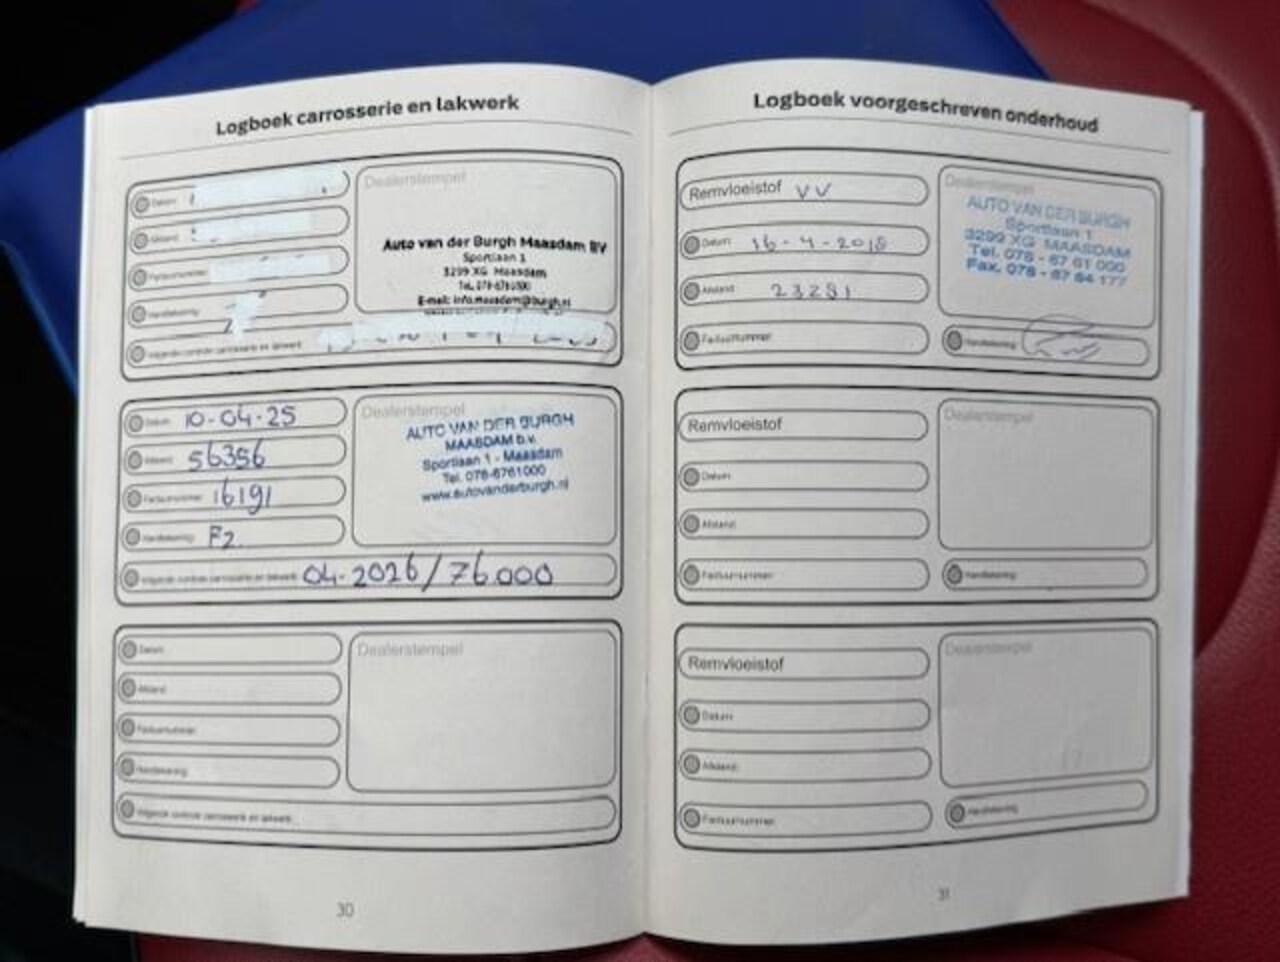 Logboek carrosserie en lakwerk
Datum:
Afstand:
Factuurnummer:
Handtekening:
Dealerstempel
Auto van der Burgh Maasdam BV
Sportlaan 1
3299 XG Maasdam
E-mail: info.maasdam@burgh.nl
Volgende controle carrosserie en lakwerk:
Datum: 10-04-25
Afstand: 56356
Factuurnummer: 16191
Handtekening: F2.
Dealerstempel
AUTO VAN DER BURGH
MAASDAM b.v.
Sportlaan 1 - Maasdam
Tel. 078-6761000
www.autovanderburgh.nl
Volgende controle carrosserie en lakwerk: 04-2026/76.000
Datum:
Afstand:
Factuurnummer:
Handtekening:
Dealerstempel
Volgende controle carrosserie en lakwerk:
30
Logboek voorgeschreven onderhoud
Remvloeistof VV
Datum: 16-4-2018
Afstand: 23281
Factuurnummer:
Dealerstempel
AUTO VAN DER BURGH
Sportlaan 1
3299 XG MAASDAM
Tel. 078 - 67 61 000
Fax. 078 - 67 64 177
Handtekening:
Remvloeistof
Datum:
Afstand:
Factuurnummer:
Dealerstempel
Handtekening:
Remvloeistof
Datum:
Afstand:
Factuurnummer:
Dealerstempel
Handtekening:
31